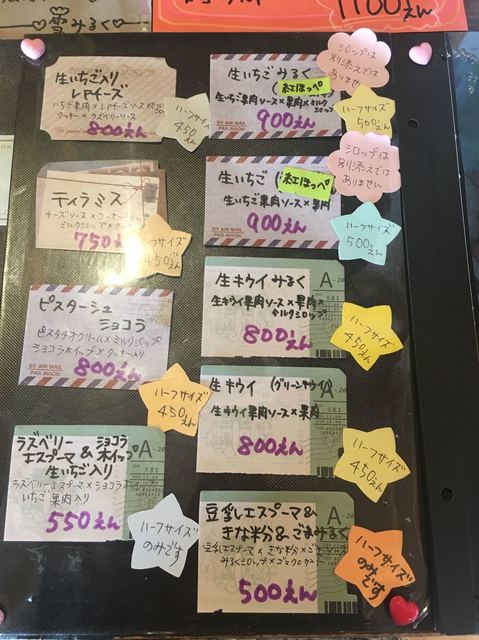 雪みるく
1100えん
生いちご入り
レアチーズ
いちご果肉×レアチーズソース×ミルクシロップ
クッキー×ラズベリーソース
800えん
ハーフサイズ
450えん
ティラミス
チーズソース×コーヒー
ミルクシロップ×
750えん
ハーフサイズ
450えん
ピスターシュ
ショコラ
ピスタチオクリーム×ミルクシロップ
ショコラホイップ×クッキー入り
800えん
BY AIR MAIL
PAR AVION
ハーフサイズ
450えん
ラズベリー ショコラ
エスプーマ & ホイップ
生いちご入り
ラズベリーエスプーマ×ショコラホイップ
いちご果肉入り
550えん
ハーフサイズ
のみです
生いちごみるく
紅ほっぺ
生いちご果肉ソース×果肉×ミルク
シロップ
900えん
BY AIR MAIL
PAR AVION
シロップは
別添えでは
ありません
ハーフサイズ
500えん
生いちご
紅ほっぺ
生いちご果肉ソース×果肉
900えん
BY AIR MAIL
PAR AVION
シロップは
別添えでは
ありません
ハーフサイズ
500えん
生キウイみるく
生キウイ果肉ソース×果肉×
ミルクシロップ
800えん
ハーフサイズ
450えん
生キウイ (グリーンキウイ)
生キウイ果肉ソース×果肉
800えん
ハーフサイズ
450えん
豆乳エスプーマ&
きな粉&ごまみるく
豆乳エスプーマ×きな粉×ごまソース
みるくシロップ×ゴマクロカント
500えん
ハーフサイズ
のみです